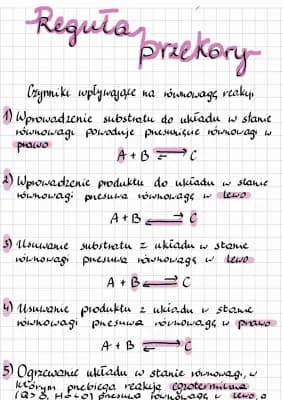 Reguła
przekory
Czynniki wpływające na równowagę reakcji
1) Wprowadzenie substratu do układu w stanie
równowagi powoduje przesunięcie równowagi w
prawo
A + B ⇌ C
2) Wprowadzenie produktu do układu w stanie
równowagi przesuwa równowagę w lewo
A + B ⇌ C
3) Usuwanie substratu z układu w stanie
równowagi przesuwa równowagę w lewo
A + B ⇌ C
4) Usuwanie produktu z układu w stanie
równowagi przesuwa równowagę w prawo
A + B ⇌ C
5) Ogrzewanie układu w stanie równowagi, w
którym przebiega reakcja egzotermiczna
przesuwa równowagę w lewo, a